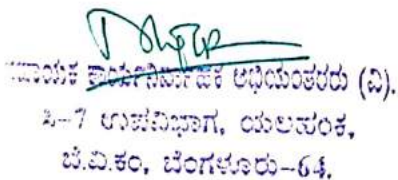 ಸಹಾಯಕ ಕಾರ್ಯನಿರ್ವಾಹಕ ಅಭಿಯಂತರರು (ವಿ).
ಸಿ-7 ಉಪವಿಭಾಗ, ಯಲಹಂಕ,
ಬೆ.ವಿ.ಕಂ, ಬೆಂಗಳೂರು-64.